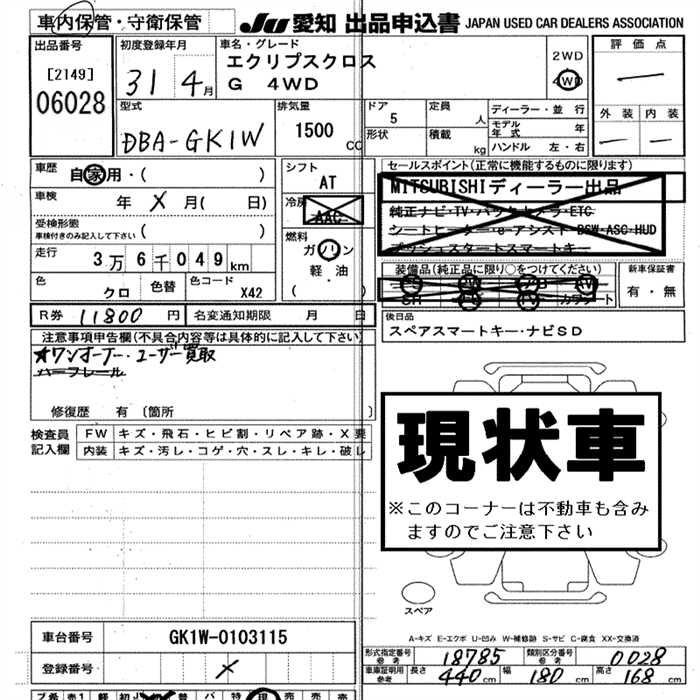 車内保管・守衛保管
JU 愛知 出品申込書 JAPAN USED CAR DEALERS ASSOCIATION
出品番号
[2149]
06028
初度登録年月
31 4月
車名・グレード
エクリプスクロス
G 4WD
2WD
4WD
評価点
外装 内装
型式
DBA-GK1W
排気量
1500 CC
ドア
5
形状
定員
人
積載
kg
ディーラー・並行
モデル年式 年
ハンドル 左・右
車歴
自家用・( )
車検
年 X 月( 日)
受検形態
車検付きのみ記入して下さい ( )
走行
3万6千049km
色
クロ
色替
色コード
X42
シフト
AT
冷房
AAC
燃料
ガソリン
軽・油
セールスポイント(正常に機能するものに限ります)
MITSUBISHIディーラー出品
純正ナビ・TV・バックカメラ・ETC
シートヒーター・e-アシスト・BSW・ASC・HUD
プッシュスタートスマートキー
装備品(純正品に限り○をつけてください)
SR
TV
新車保証書
有・無
R券 11800 円
名変通知期限 月 日
後日品
スペアスマートキー・ナビSD
注意事項申告欄(不具合内容等は具体的に記入して下さい)
★ワンオーナー・ユーザー買取
修復歴 有 〔箇所 〕
検査員
記入欄
FW キズ・飛石・ヒビ割・リペア跡・X要
内装 キズ・汚レ・コゲ・穴・スレ・キレ・破レ
現状車
※このコーナーは不動車も含み
ますのでご注意下さい
スペア
A-キズ E-エクボ U-凹み W-補修跡 S-サビ C-腐食 XX-交換済
車台番号
GK1W-0103115
登録番号
X
形式指定番号
参考
18785
類別区分番号
参考
0028
車庫証明用
参考
長さ
440 cm
幅
180 cm
高さ
168 cm